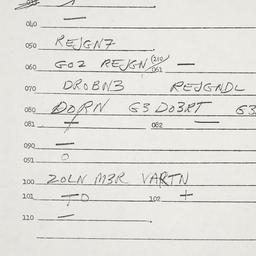 040 —
050 REJGN7
060 GO2 REJGN 050 061 —
070 DROBN3 REJGNDL
080 DORN G3 DO3RT G3
081 + 082 —
090 —
091 O
100 ZOLN M3R VARTN
101 TO 102 +
110 —